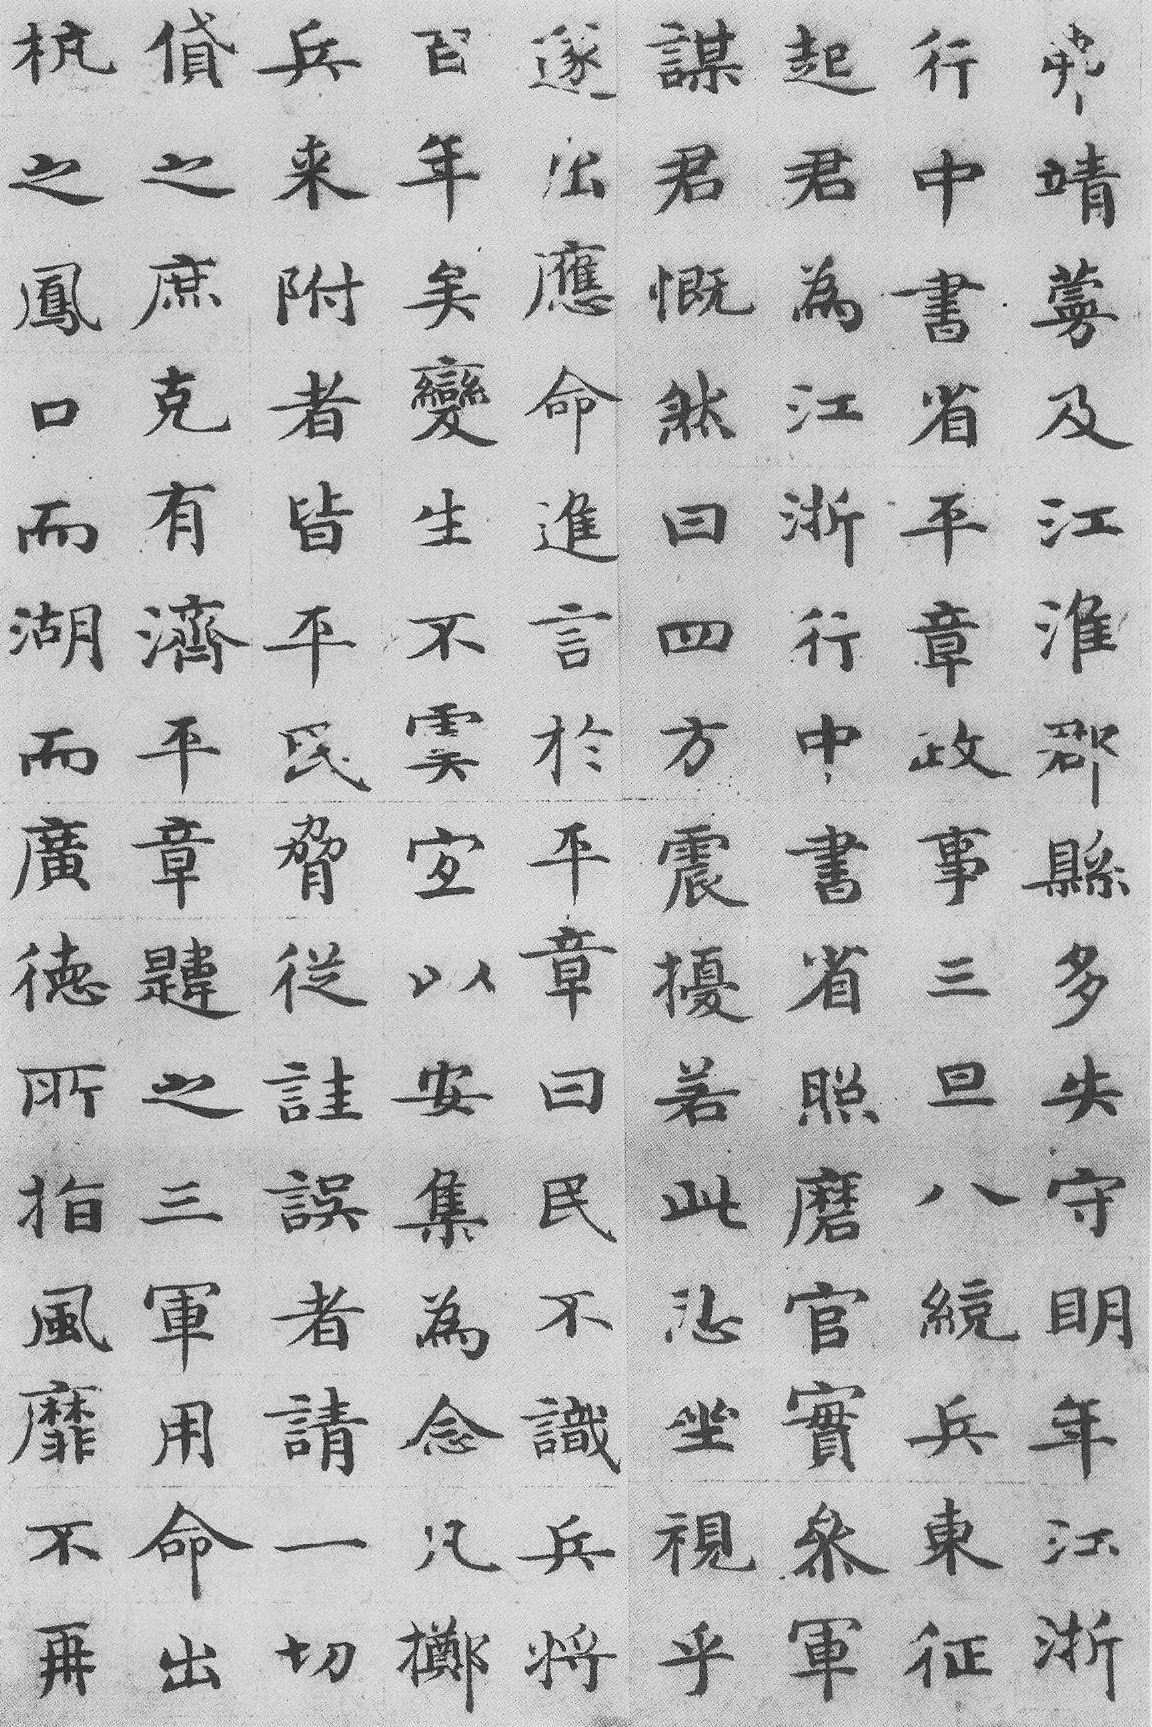 弗靖蔓及江淮郡縣多失守明年江浙
行中書省平章政事三旦八統兵東征
起君為江浙行中書省照磨官實叅軍
謀君慨然曰四方震擾若此忍坐視乎
遂出應命進言於平章曰民不識兵將
百年矣變生不虞宜以安集為念凡擲
兵来附者皆平民脅從詿誤者請一切
貸之庶克有濟平章韙之三軍用命出
杭之鳳口而湖而廣德所指風靡不再